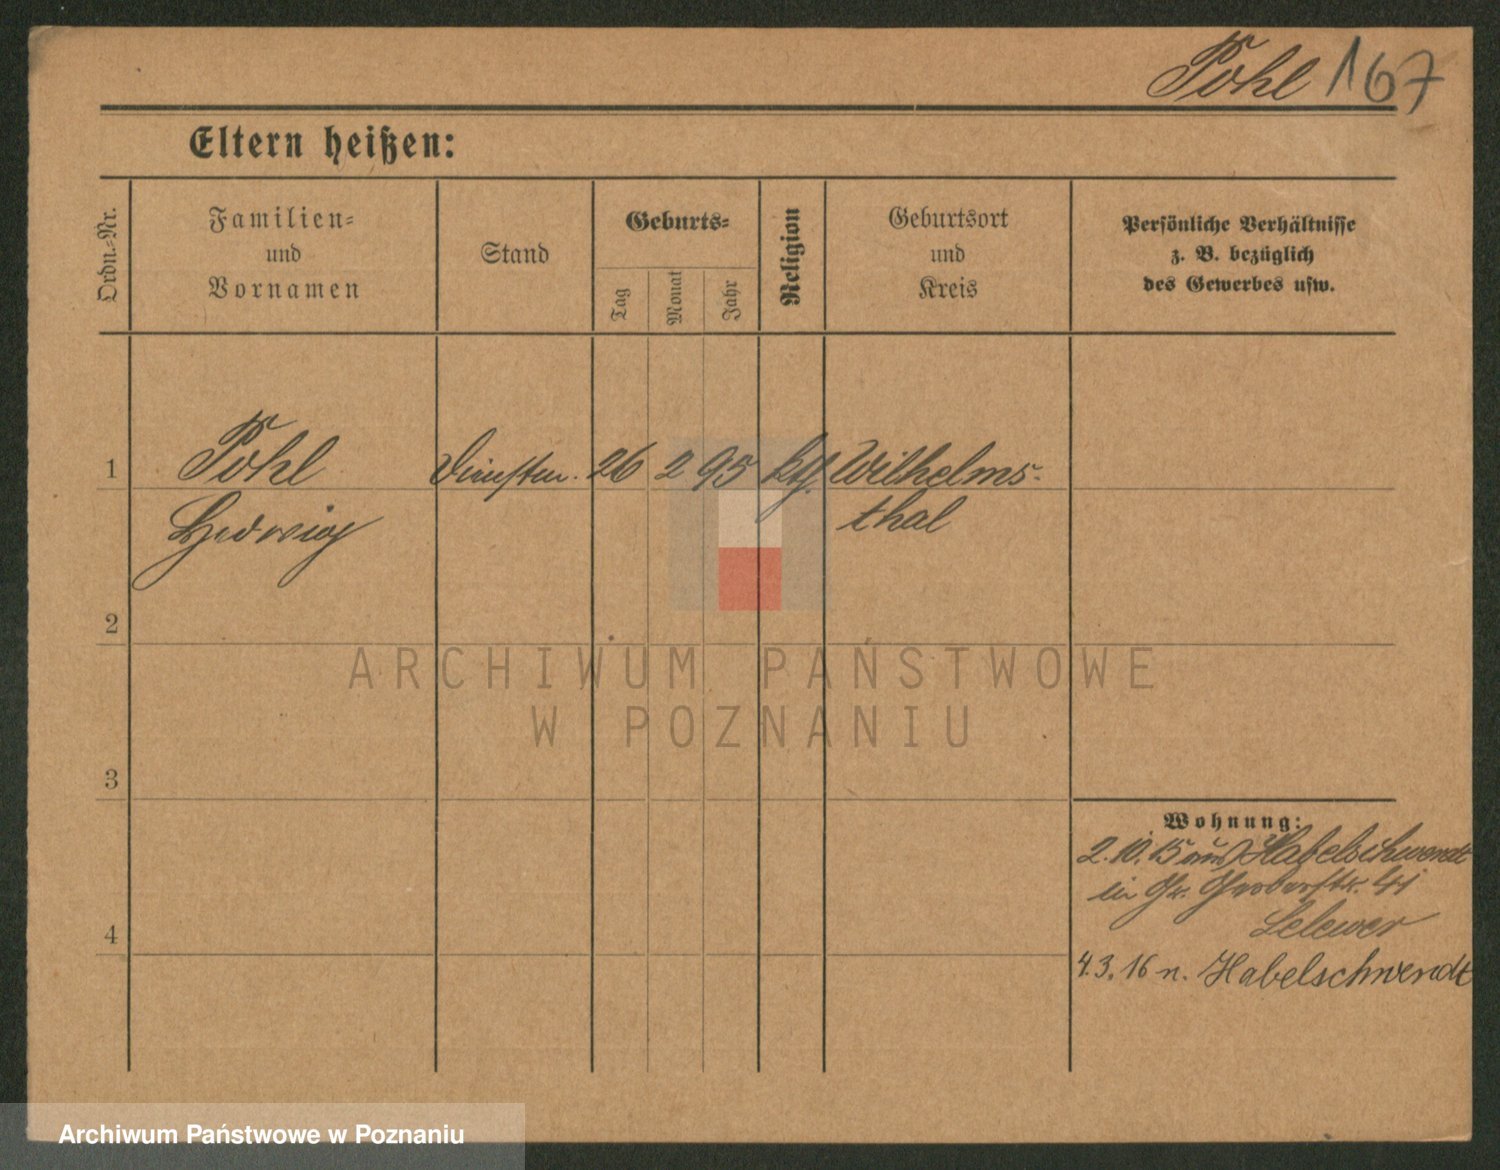 Pohl 167
Eltern heißen:
Ordn.-Nr.
Familien-
und
Vornamen
Stand
Geburts-
Tag
Monat
Jahr
Religion
Geburtsort
und
Kreis
Persönliche Verhältnisse
z. B. bezüglich
des Gewerbes usw.
1
Pohl
26 2 95 kth. Wilhelms-
Hedwig
thal
2
ARCHIWUM PAŃSTWOWE
W POZNANIU
3
Wohnung:
2. 10. 15 aus Habelschwendt
in Gr. Gerberstr. 41
Selewer
4
4. 3. 16 n. Habelschwendt
Archiwum Państwowe w Poznaniu